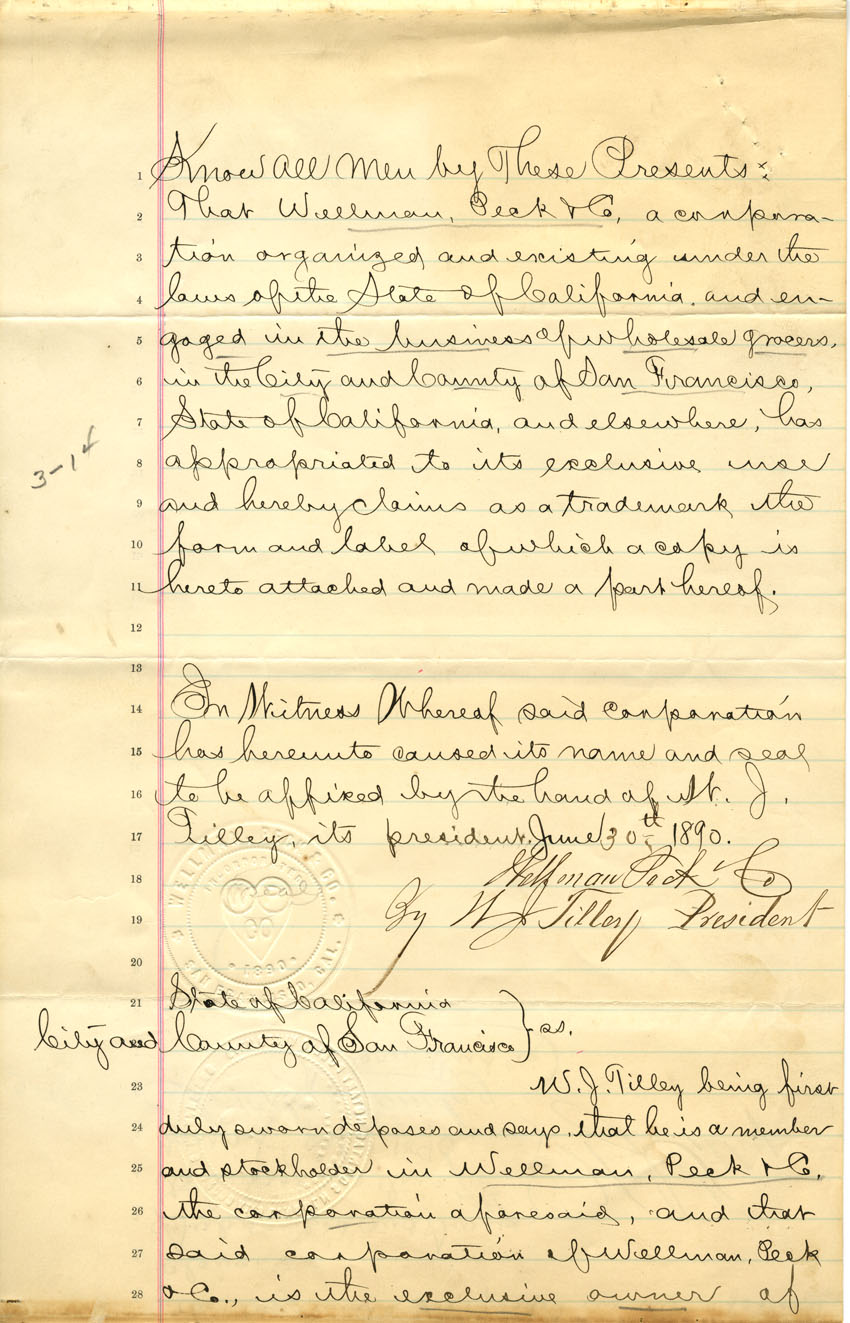 1 Know All Men by These Presents:
2 That Wellman, Peck & Co, a corpora-
3 tion organized and existing under the
4 laws of the State of California, and en-
5 gaged in the business of wholesale grocers,
6 in the City and County of San Francisco,
7 State of California, and elsewhere, has
3-14
8 appropriated to its exclusive use
9 and hereby claims as a trademark the
10 form and label of which a copy is
11 hereto attached and made a part hereof.
12
13
14 In Witness Whereof said corporation
15 has hereunto caused its name and seal
16 to be affixed by the hand of W. J.
17 Tilley, its president, June 30th 1890.
18 Wellman Peck & Co
19 By W J Tilley President
WELLMAN, & CO.
1890
SAN FRANCISCO, CAL.
20
21 State of California
City and County of San Francisco } ss.
23 W. J. Tilley being first
24 duly sworn deposes and says, that he is a member
25 and stockholder in Wellman, Peck & Co.
26 the corporation aforesaid, and that
27 said corporation of Wellman, Peck
28 & Co., is the exclusive owner of